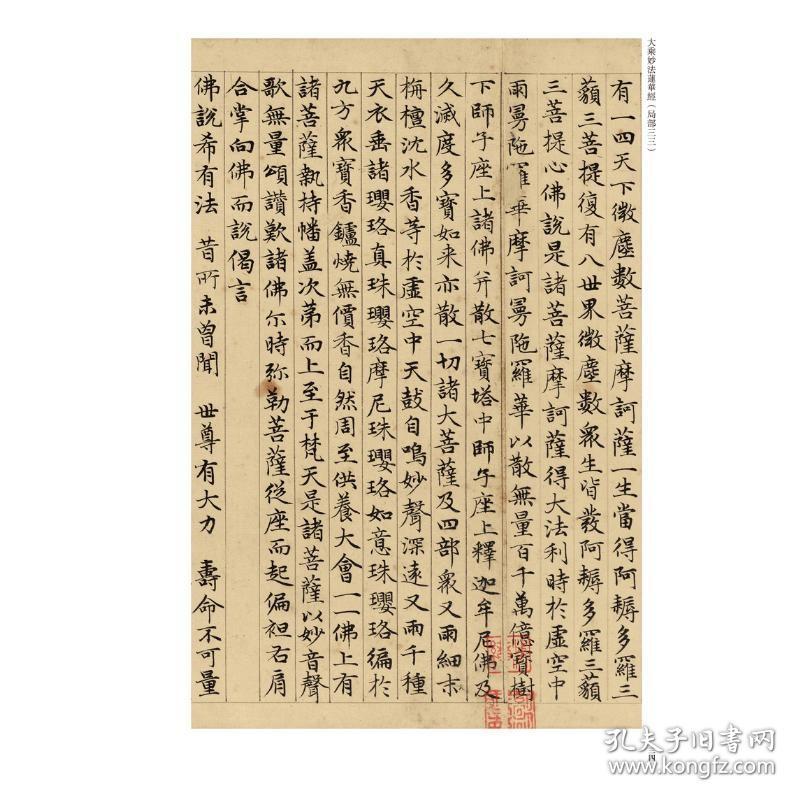 大乘妙法蓮華經（局部三三）
有一四天下微塵數菩薩摩訶薩一生當得阿耨多羅三
藐三菩提復有八世界微塵數衆生皆發阿耨多羅三藐
三菩提心佛說是諸菩薩摩訶薩得大法利時於虛空中
雨曼陁羅華摩訶曼陁羅華以散無量百千萬億寶樹
下師子座上諸佛并散七寶塔中師子座上釋迦牟尼佛及
久滅度多寶如来亦散一切諸大菩薩及四部衆又雨細末
栴檀沈水香等於虛空中天鼓自鳴妙聲深遠又雨千種
天衣垂諸瓔珞真珠瓔珞摩尼珠瓔珞如意珠瓔珞遍於
九方衆寶香鑪燒無價香自然周至供養大會一一佛上有
諸菩薩執持幡盖次第而上至于梵天是諸菩薩以妙音聲
歌無量頌讚歎諸佛尒時弥勒菩薩從座而起偏袒右肩
合掌向佛而說偈言
佛說希有法 昔所未曾聞 世尊有大力 壽命不可量
四
孔夫子旧书网
www.kongfz.com